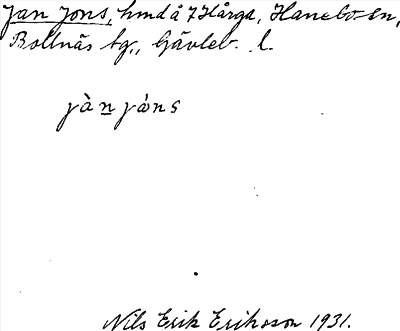 Jan Jons, hmd å 7 Hårga, Hanebo sn,
Bollnäs tg., Gävleb. l.
jàn jòns
Nils Erik Eriksson 1931.